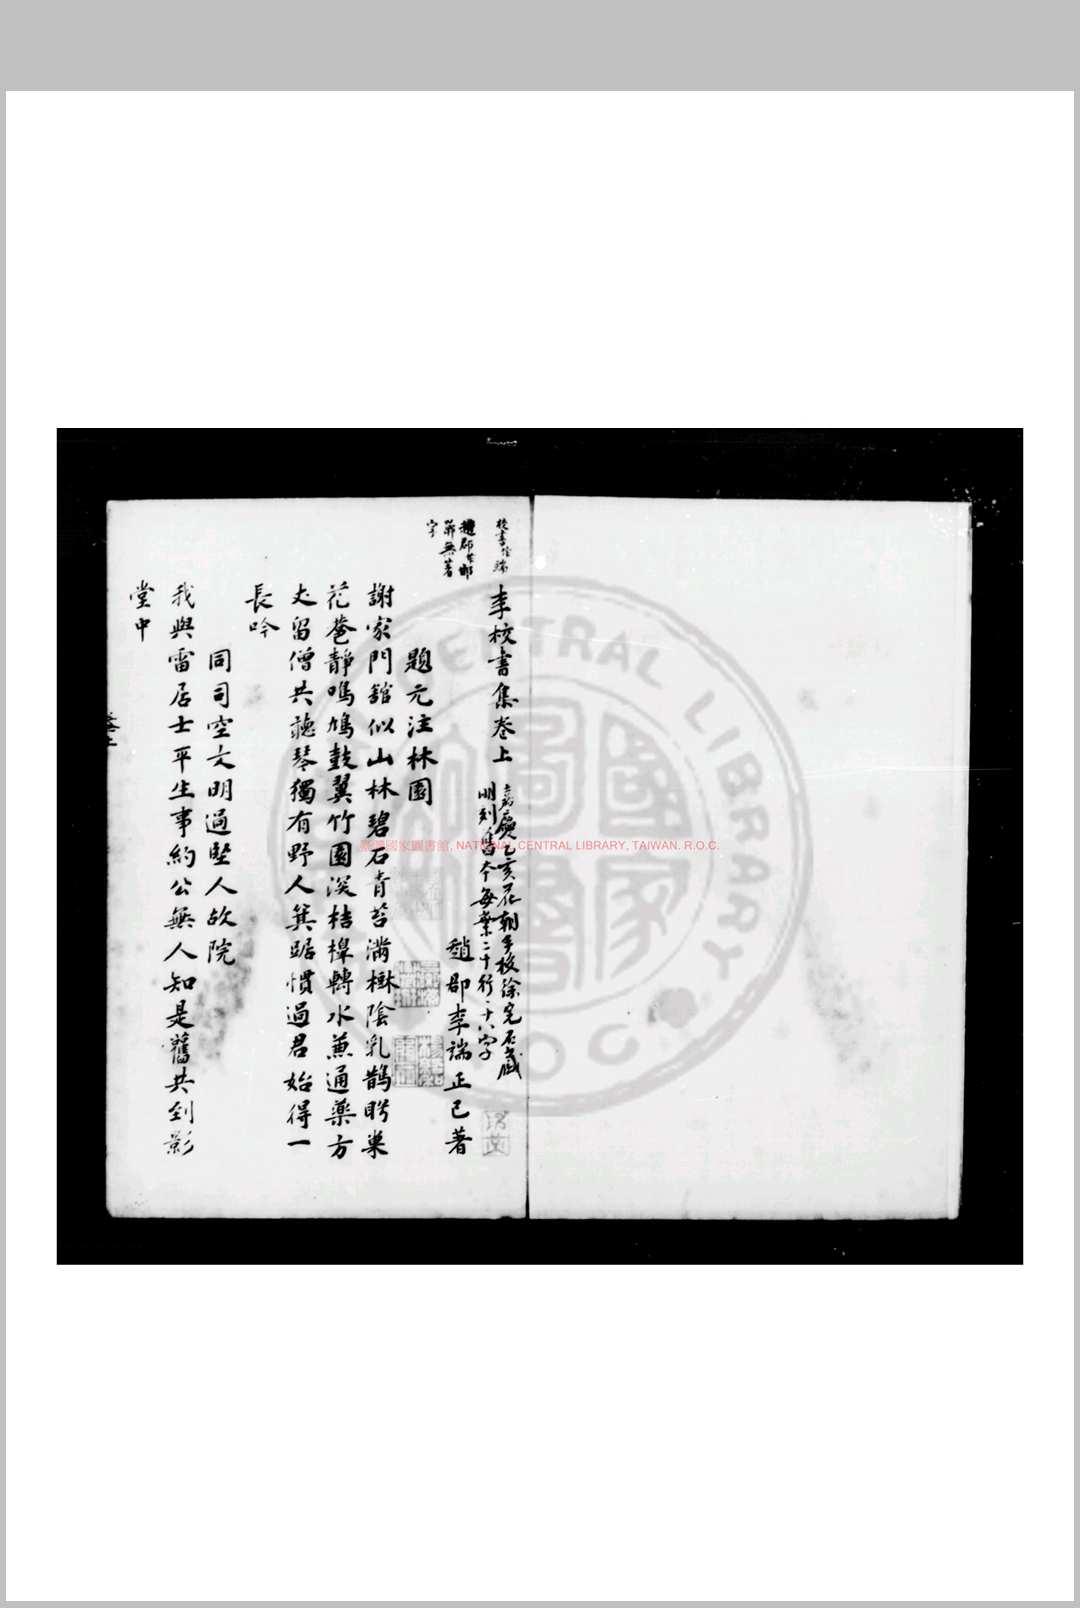 李校書集卷上
嘉慶乙亥花朝手校徐完石藏
明刻舊本每葉二十行十八字
趙郡李端正己著
題元注林園
謝家門館似山林碧石青苔滿樹陰乳鵲眄巢
花巷靜鳴鳩鼓翼竹園深桔槔轉水兼通藥方
丈留僧共聽琴獨有野人箕踞慣過君始得一
長吟
同司空文明過堅人故院
我與雷居士平生事約公無人知是舊共到影
堂中
卷上
臺灣國家圖書館, NATIONAL CENTRAL LIBRARY, TAIWAN. R.O.C.
CENTRAL LIBRARY
R O C